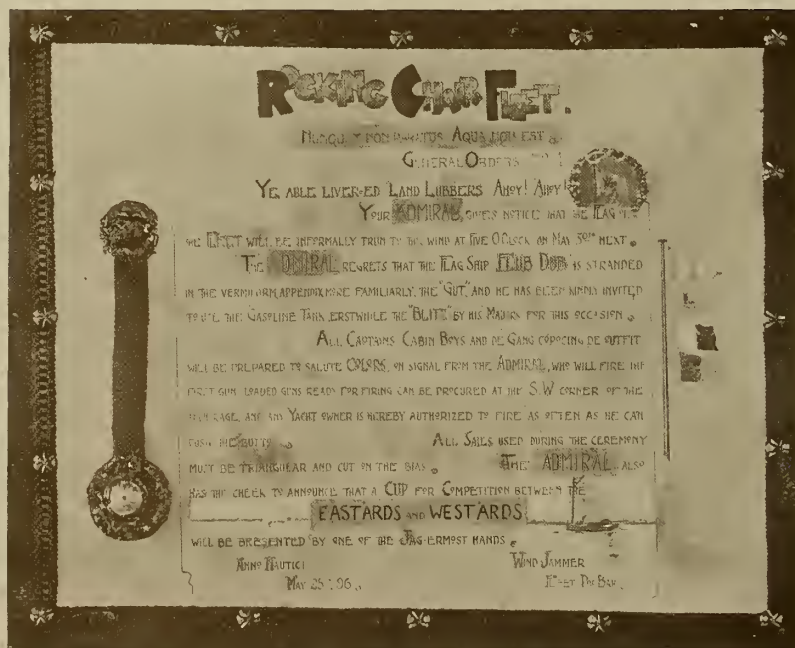 ROCKING CHAIR FLEET.
AQUA NON EST
GENERAL ORDERS
YE ABLE LIVER-ED LAND LUBBERS AHOY! AHOY!
YOUR ADMIRAL, GIVES NOTICE THAT THE FLAG OF
THE FLEET WILL BE INFORMALLY TRUN TO THE WIND AT FIVE O'CLOCK ON MAY 30TH NEXT.
THE ADMIRAL REGRETS THAT THE FLAG SHIP FLUB DUB IS STRANDED
IN THE VERMIFORM APPENDIX, MORE FAMILIARLY, THE "GUT", AND HE HAS BEEN KINDLY INVITED
TO USE THE GASOLINE TANK, ERSTWHILE THE "BLITZ" BY HIS MAJORS FOR THIS OCCASION.
ALL CAPTAINS CABIN BOYS AND DE GANG COPOCING DE OUTFIT
WILL BE PREPARED TO SALUTE COLORS, ON SIGNAL FROM THE ADMIRAL, WHO WILL FIRE THE
FIRST GUN. LOADED GUNS READY FOR FIRING CAN BE PROCURED AT THE S.W CORNER OF THE
AND ANY YACHT OWNER IS HEREBY AUTHORIZED TO FIRE AS OFTEN AS HE CAN
PUSH THE BUTTO ALL SAILS USED DURING THE CEREMONY
MUST BE TRIANGULAR AND CUT ON THE BIAS. THE ADMIRAL ALSO
HAS THE CHEEK TO ANNOUNCE THAT A CUP FOR COMPETITION BETWEEN THE
EASTARDS AND WESTARDS
WILL BE PRESENTED BY ONE OF THE JAG-ERMOST HANDS.
ANNO NAUTICI WIND JAMMER
MAY 25 '96. THE BAR